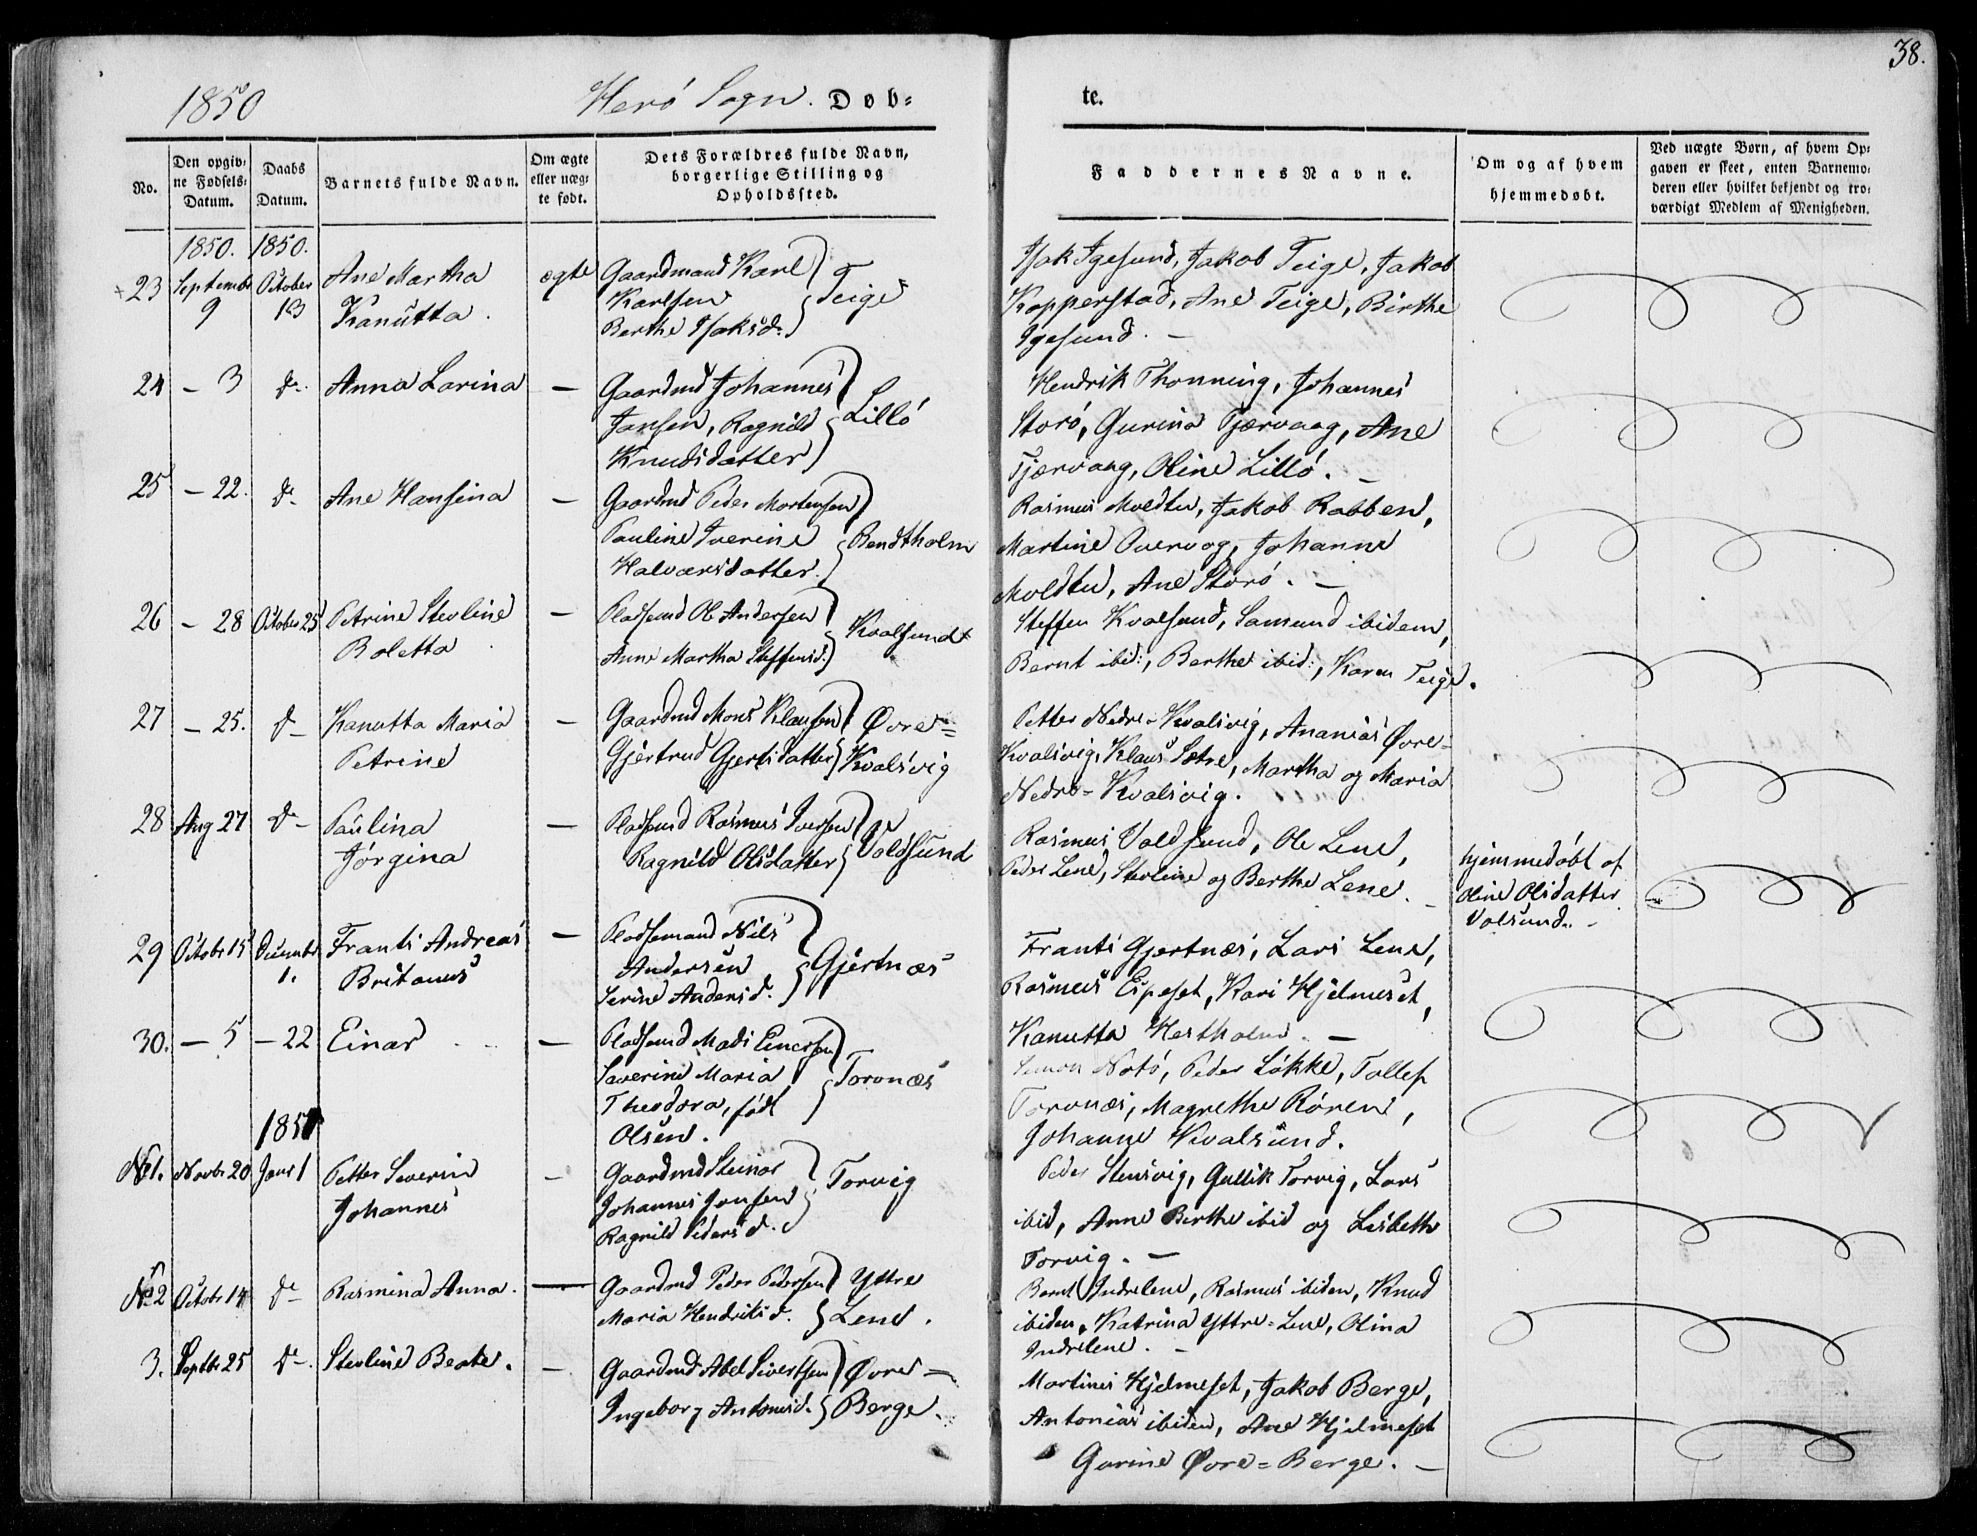 38.
1850
Herö Sogn. Døb=
te.
No.
Den opgiv=
ne Fødsels=
Datum.
Daabs
Datum.
Barnets fulde Navn.
Om ægte
eller uæg=
te født.
Dets Forældres fulde Navn,
borgerlige Stilling og
Opholdssted.
Faddernes Navne.
Om og af hvem
hjemmedøbt.
Ved uægte Børn, af hvem Op=
gaven er skeet, enten Barnemo=
deren eller hvilket bekjendt og tro=
værdigt Medlem af Menigheden.
1850. 1850.
23 Septembr 9 October 13
Ane Martha
Kanutta.
ægte
Gaardmand Karl
Karlsen
Berthe Isaksd.
Teige
Isak Igesund, Jakob Teige, Jakob
Kopperstad, Ane Teige, Birthe
Igesund. —
24 — 3 do
Anna Larina
—
Gaardmd Johannes
Jansen, Ragnild
Knudsdatter
Lillö
Hendrik Thonning, Johannes
Storö, Gurina Tjærvaag, Ane
Tjærvaag, Oline Lillö. —
25 — 22. do
Ane Hansina
—
Gaardmd Peder Mortensen
Pauline Iverine
Halvarsdatter.
Bendtholm
Rasmus Moldtu, Jakob Rabben,
Martine Overvog, Johanne
Moldtu, Ane Storö. —
26 — 28 October 25
Petrine Stevline
Boletta
—
Pladsmd Ole Andersen
Anne Martha Steffensd.
Kvalsund
Steffen Kvalsund, Samund ibidem,
Bernt ibid:, Berthe ibid:, Karen Teige.
27 — 25. do
Kanutta Maria
Petrine
—
Gaardmd Mons Klausen
Gjertrud Gjertsdatter
Øvre=
Kvalsvig
Petter Nedre-Kvalsvig, Ananias Øvre=
Kvalsvig, Klaus Sætre, Martha og Maria
Nedre=Kvalsvig.
28 Aug 27 do
Paulina
Jörgina
—
Pladsmd Rasmus Iversen
Ragnild Olsdatter
Voldsund
Rasmus Voldsund, Ole Lene,
Peder Lene, Stevline og Berthe Lene. —
hjemmedöbt af
Oline Olsdatter
Volsund. —
29 Octobr 15 Decembr 1.
Frants Andreas
Britanus
—
Pladsemand Nils
Andersen
Serine Andersd.
Gjertnæs
Frants Gjertnæs, Lars Lene,
Rasmus Espeset, Kari Hjelmeset,
Kanutta Hestholm. —
30. — 5 — 22
Einar
—
Pladsmd Mads Einersen
Severine Maria
Theodora, föd
Olsen.
Torvnæs
Simon Notö, Peder Løkke, Tollef
Torvnæs, Magrethe Rören,
Johanne Kvalsund.
1851
No 1. Novbr 20 Janr 1
Petter Severin
Johannes
—
Gaardmd Steinar
Johannes Jonsen
Ragnild Pedersd.
Torvig
Peder Stensvig, Gullik Torvig, Lars
ibid, Anne Berthe ibid og Lisbeth
Torvig. —
No 2 Octobr 14 do
Rasmina Anna.
—
Gaardmd Peder Pedersen
Maria Hendriksd.
Yttre
Lene.
Bernt Indrelene, Rasmus ibidem, Knud
ibidem, Katrina Yttre=Lene, Olina
Indrelene. —
3. Septbr 25 do
Stevline Beate.
—
Gaardmd Abel Sivertsen
Ingeborg Antonsd.
Øvre—
Berge.
Martines Hjelmeset, Jakob Berge,
Antonias ibidem, Ane Hjelmeset
Gurine Øvre=Berge. —